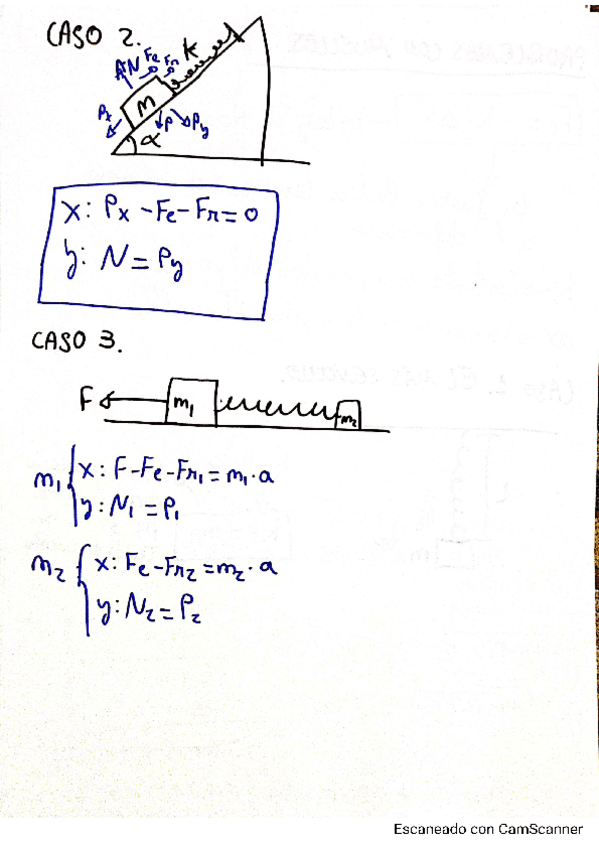 CASO 2.
Fe Fr K
N
m
Px
P Py
α
x: Px - Fe - Fr = 0
y: N = Py
CASO 3.
F m1 m2
m1 { x: F - Fe - Fr1 = m1 · a
y: N1 = P1
m2 { x: Fe - Fr2 = m2 · a
y: N2 = P2
Escaneado con CamScanner